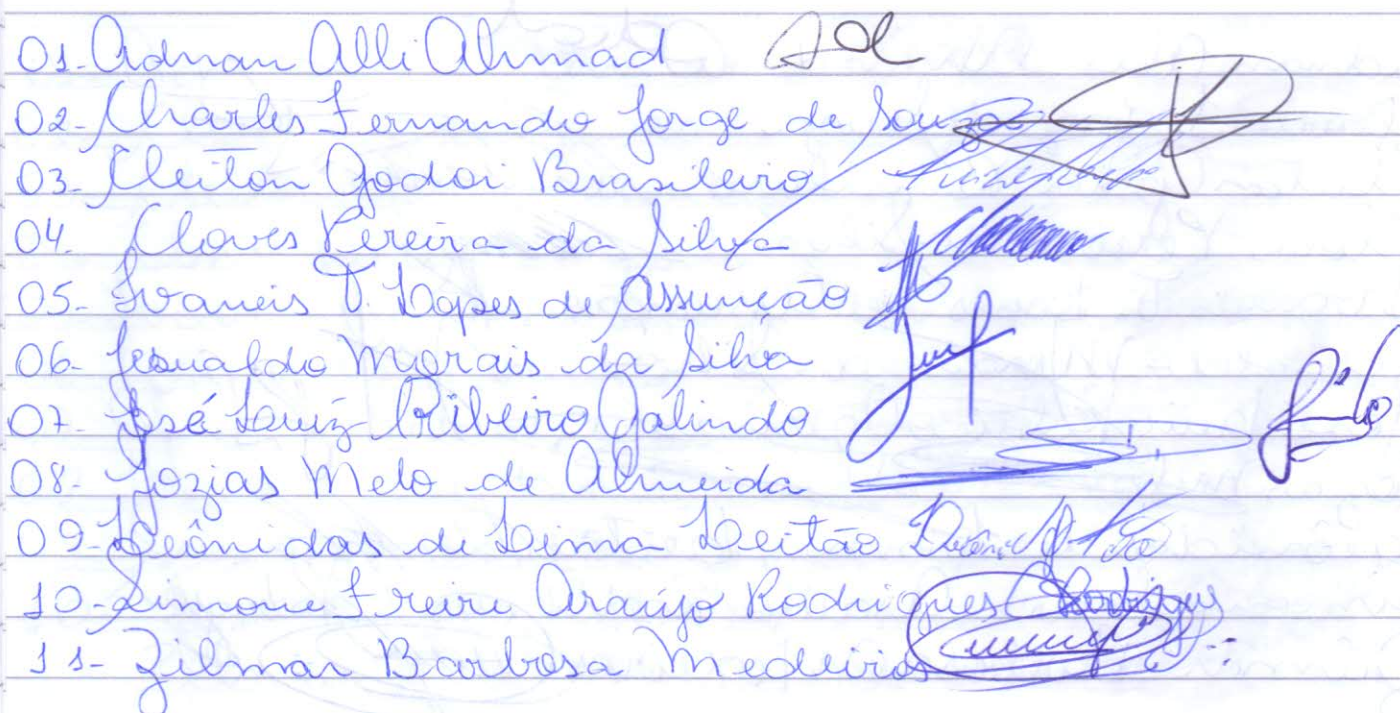 01- Adnan Alli Ahmad
02- Charles Fernando Jorge de Souza
03- Cleiton Godoi Brasileiro
04. Cloves Pereira da Silva
05- Ivaneis V. Lopes de Assunção
06- Jesualdo Morais da Silva
07- José Luiz Ribeiro Galindo
08- Jozias Melo de Almeida
09- Leônidas de Lima Leitão
10- Simone Freire Araújo Rodrigues Rodrigues
11- Zilmar Barbosa Medeiros